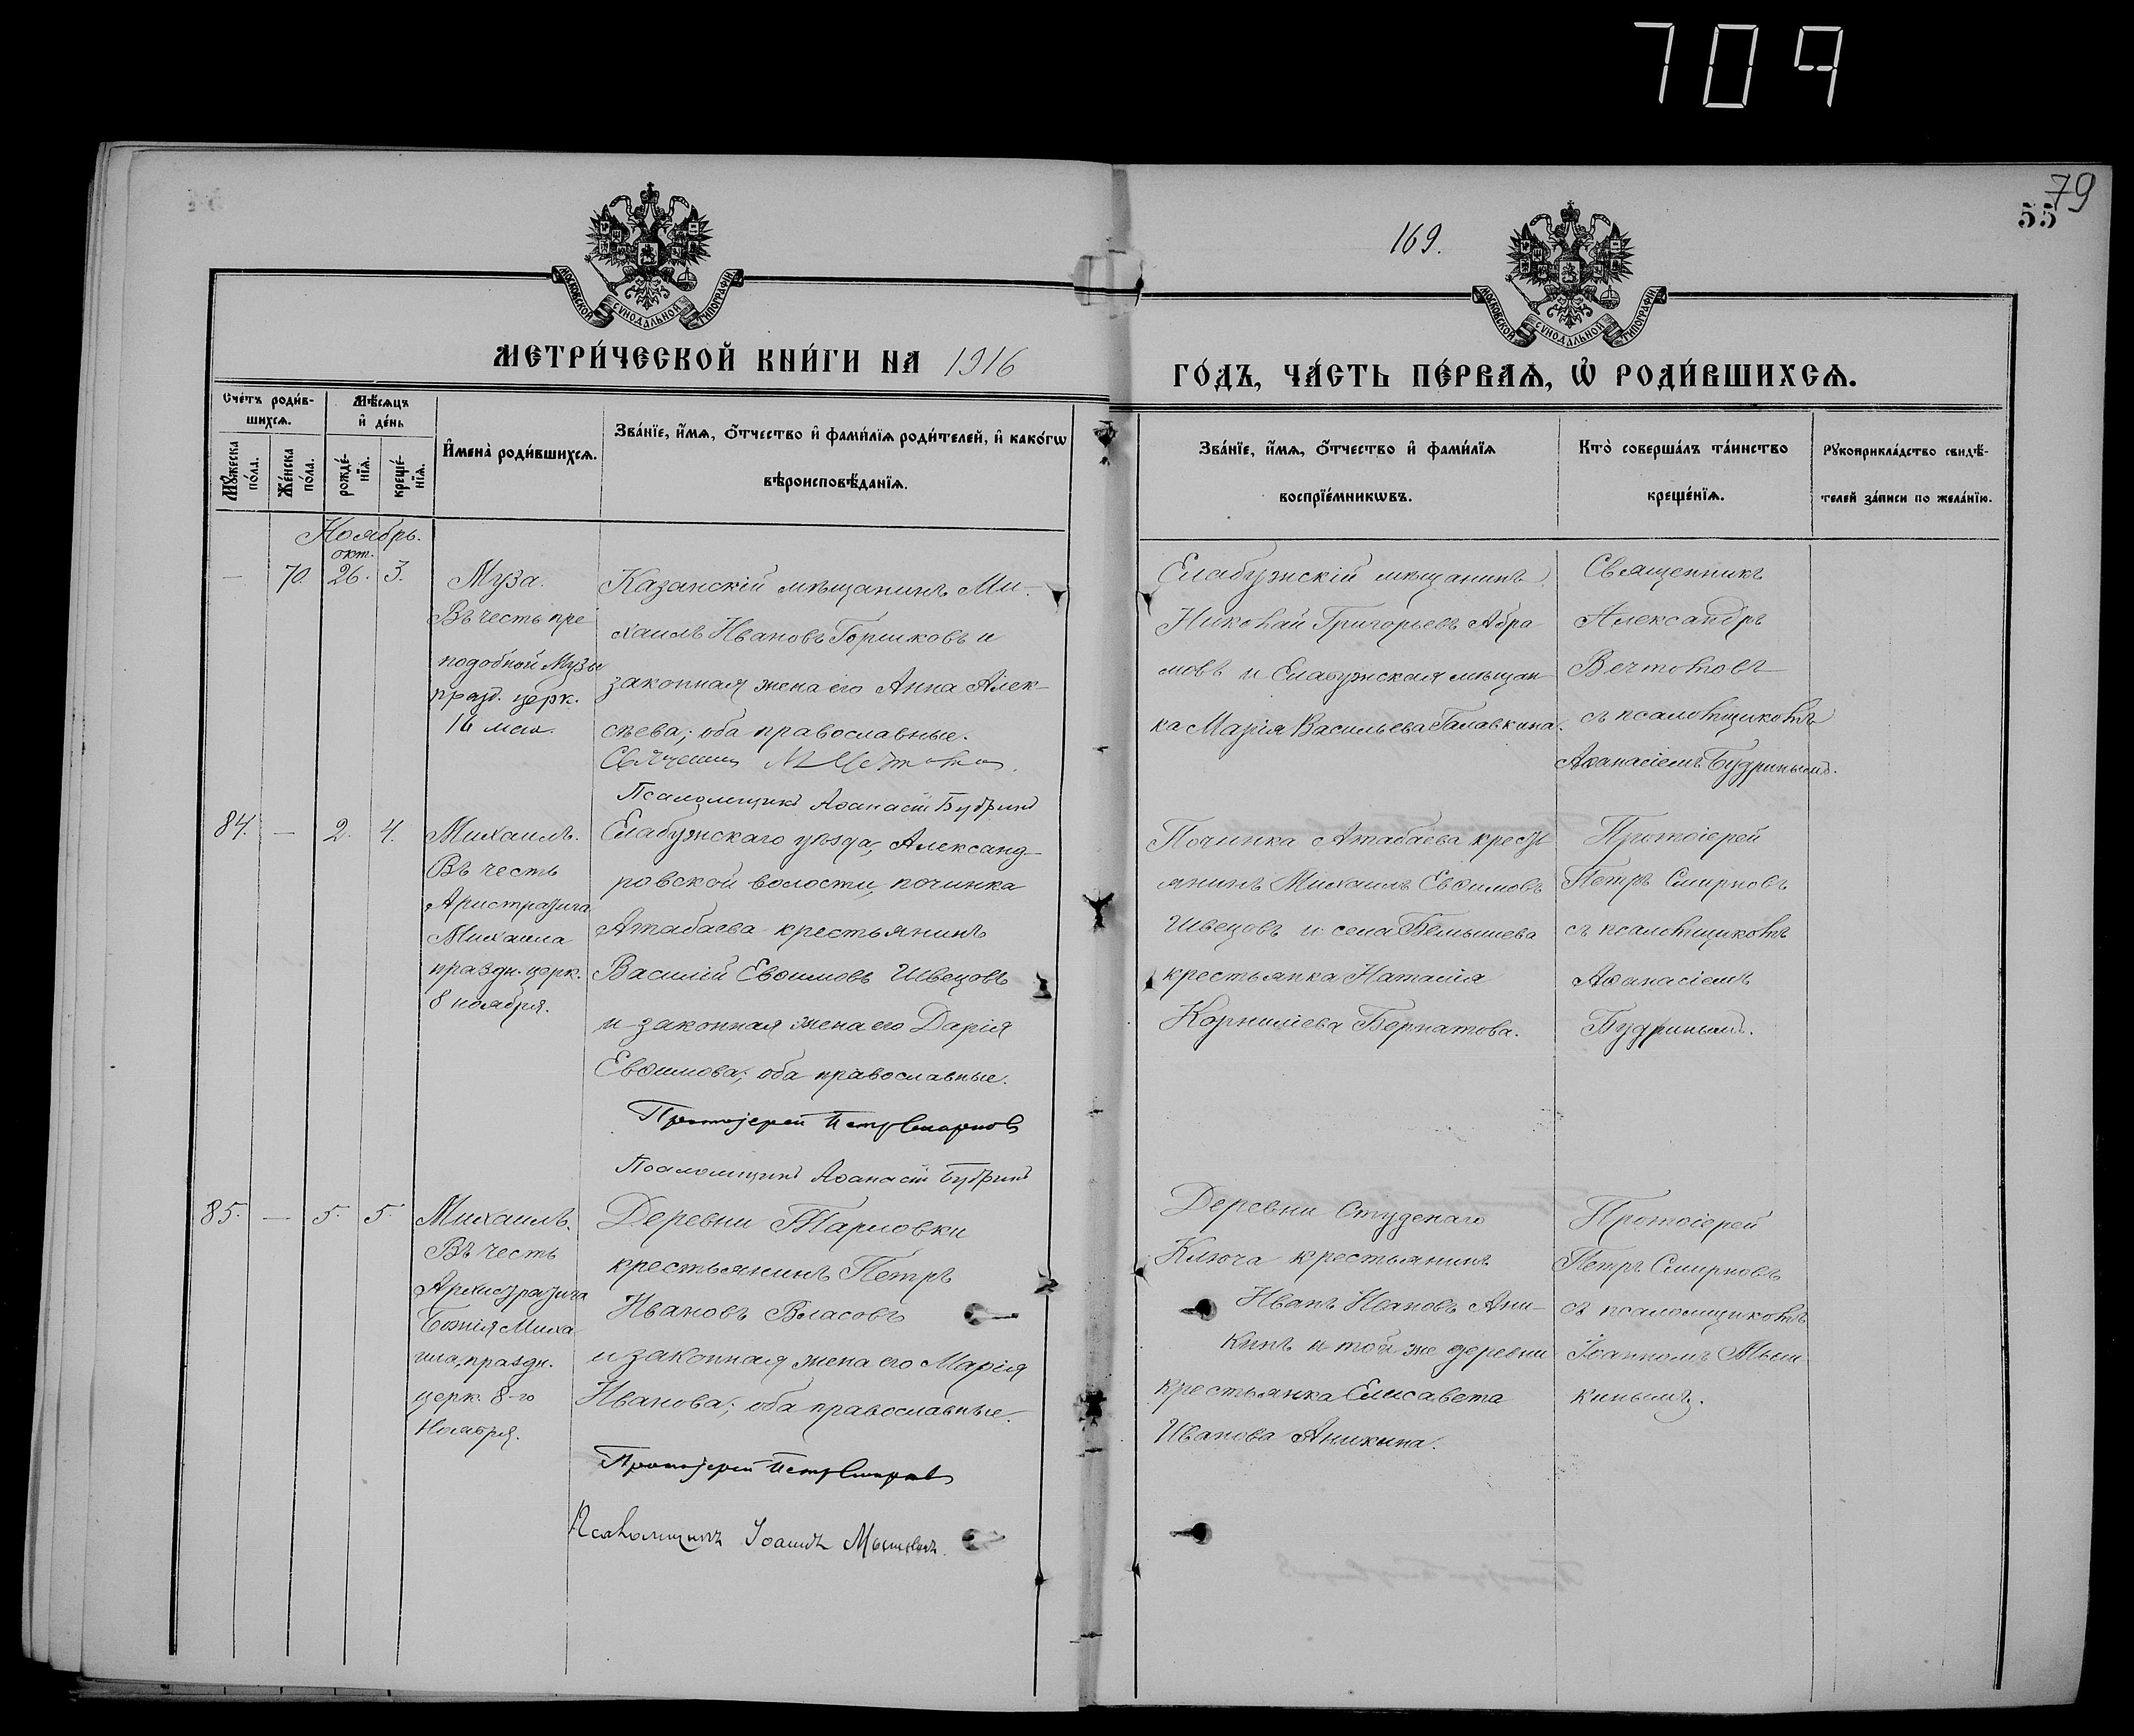 709
79
55
169.
МОСКОВСКОЙ СУНОДАЛЬНОЙ ТИПОГРАФІИ
МОСКОВСКОЙ СУНОДАЛЬНОЙ ТИПОГРАФІИ
МЕТРИ́ЧЕСКОЙ КНИ́ГИ НА 1916
ГО́ДЪ, ЧА́СТЬ ПЕ́РВАЯ, Ѡ РОДИ́ВШИХСЯ.
Сче́тъ роди́в-
шихся.
Му́жеска
по́ла.
Же́нска
по́ла.
Мѣ́сяцъ
и҆ де́нь
рожде́-
нїя.
креще́-
нїя.
И҆мена̀ роди́вшихся.
Зва́нїе, и҆́мя, о҆́тчество и҆ фами́лїя роди́телей, и҆ како́гѡ
вѣроисповѣ́данїя.
Зва́нїе, и҆́мя, о҆́тчество и҆ фами́лїя
воспрїе́мникѡвъ.
Кто̀ соверша́лъ та́инство
креще́нїя.
Рукоприкла́дство свидѣ́-
телей за́писи по жела́нїю.
Ноябрь.
окт.
— 70. 26. 3.
Муза.
Въ честь пре
подобной Музы
празд. церк.
16 мая.
Казанскій мѣщанинъ Ми-
хаилъ Ивановъ Горшковъ и
законная жена его Анна Алек-
сѣева; оба православные.
Псаломщикъ Аѳанасій Будринъ
Елабужскій мѣщанинъ
Николай Григорьевъ Абра
мовъ и Елабужская мѣщан
ка Марія Васильева Галавкина.
Священникъ
Александръ
Вечтомовъ
съ псаломщикомъ
Аѳанасіемъ Будринымъ.
84. — 2. 4.
Михаилъ.
Въ честь
Архистратига
Михаила
праздн. церк.
8 ноября.
Елабужскаго уѣзда, Александ-
ровской волости, починка
Атабаева крестьянинъ
Василій Евѳимовъ Швецовъ
и законная жена его Дарія
Евѳимова; оба православные.
Протоіерей Петръ Смирновъ
Псаломщикъ Аѳанасій Будринъ
Починка Атабаева кресть
янинъ Михаилъ Евѳимовъ
Швецовъ и села Бѣмышева
крестьянка Наталія
Корниліева
Протоіерей
Петръ Смирновъ
съ псаломщикомъ
Аѳанасіемъ
Будринымъ.
85. — 5. 5.
Михаилъ.
Въ честь
Архистратига
Божія Миха
ила, праздн.
церк. 8-го
Ноября.
Деревни Тарловки
крестьянинъ Петръ
Ивановъ Власовъ
и законная жена его Марія
Иванова; оба православные.
Протоіерей Петръ Смирновъ
Псаломщикъ Іоаннъ Мышкинъ.
Деревни Студенаго
Ключа крестьянинъ
Иванъ Ивановъ Ани-
кинъ и той же деревни
крестьянка Елисавета
Иванова Аникина.
Протоіерей
Петръ Смирновъ
съ псаломщикомъ
Іоанномъ Мыш
кинымъ.